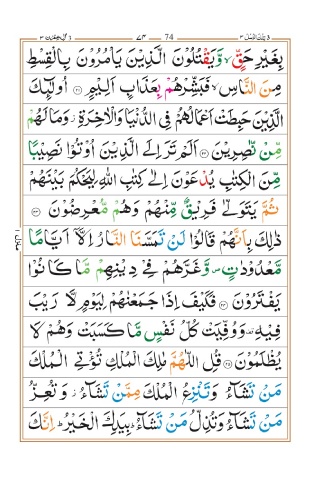 بِغَيْرِ حَقٍّ ۙ وَّيَقْتُلُوْنَ الَّذِيْنَ يَاْمُرُوْنَ بِالْقِسْطِ
مِنَ النَّاسِ ۙ فَبَشِّرْهُمْ بِعَذَابٍ اَلِيْمٍ ﴿۲۱﴾ اُولٰٓئِكَ
الَّذِيْنَ حَبِطَتْ اَعْمَالُهُمْ فِى الدُّنْيَا وَالْاٰخِرَةِ ۫ وَمَا لَهُمْ
مِّنْ نّٰصِرِيْنَ ﴿۲۲﴾ اَلَمْ تَرَ اِلَى الَّذِيْنَ اُوْتُوْا نَصِيْبًا
مِّنَ الْكِتٰبِ يُدْعَوْنَ اِلٰى كِتٰبِ اللّٰهِ لِيَحْكُمَ بَيْنَهُمْ
ثُمَّ يَتَوَلّٰى فَرِيْقٌ مِّنْهُمْ وَهُمْ مُّعْرِضُوْنَ ﴿۲۳﴾
ذٰلِكَ بِاَنَّهُمْ قَالُوْا لَنْ تَمَسَّنَا النَّارُ اِلَّاۤ اَيَّامًا
مَّعْدُوْدٰتٍ ۪ وَّغَرَّهُمْ فِىْ دِيْنِهِمْ مَّا كَانُوْا
يَفْتَرُوْنَ ﴿۲۴﴾ فَكَيْفَ اِذَا جَمَعْنٰهُمْ لِيَوْمٍ لَّا رَيْبَ
فِيْهِ ۟ وَوُفِّيَتْ كُلُّ نَفْسٍ مَّا كَسَبَتْ وَهُمْ لَا
يُظْلَمُوْنَ ﴿۲۵﴾ قُلِ اللّٰهُمَّ مٰلِكَ الْمُلْكِ تُؤْتِى الْمُلْكَ
مَنْ تَشَآءُ وَتَنْزِعُ الْمُلْكَ مِمَّنْ تَشَآءُ ۫ وَتُعِزُّ
مَنْ تَشَآءُ وَتُذِلُّ مَنْ تَشَآءُ ؕ بِيَدِكَ الْخَيْرُ ؕ اِنَّكَ
۷۴
74